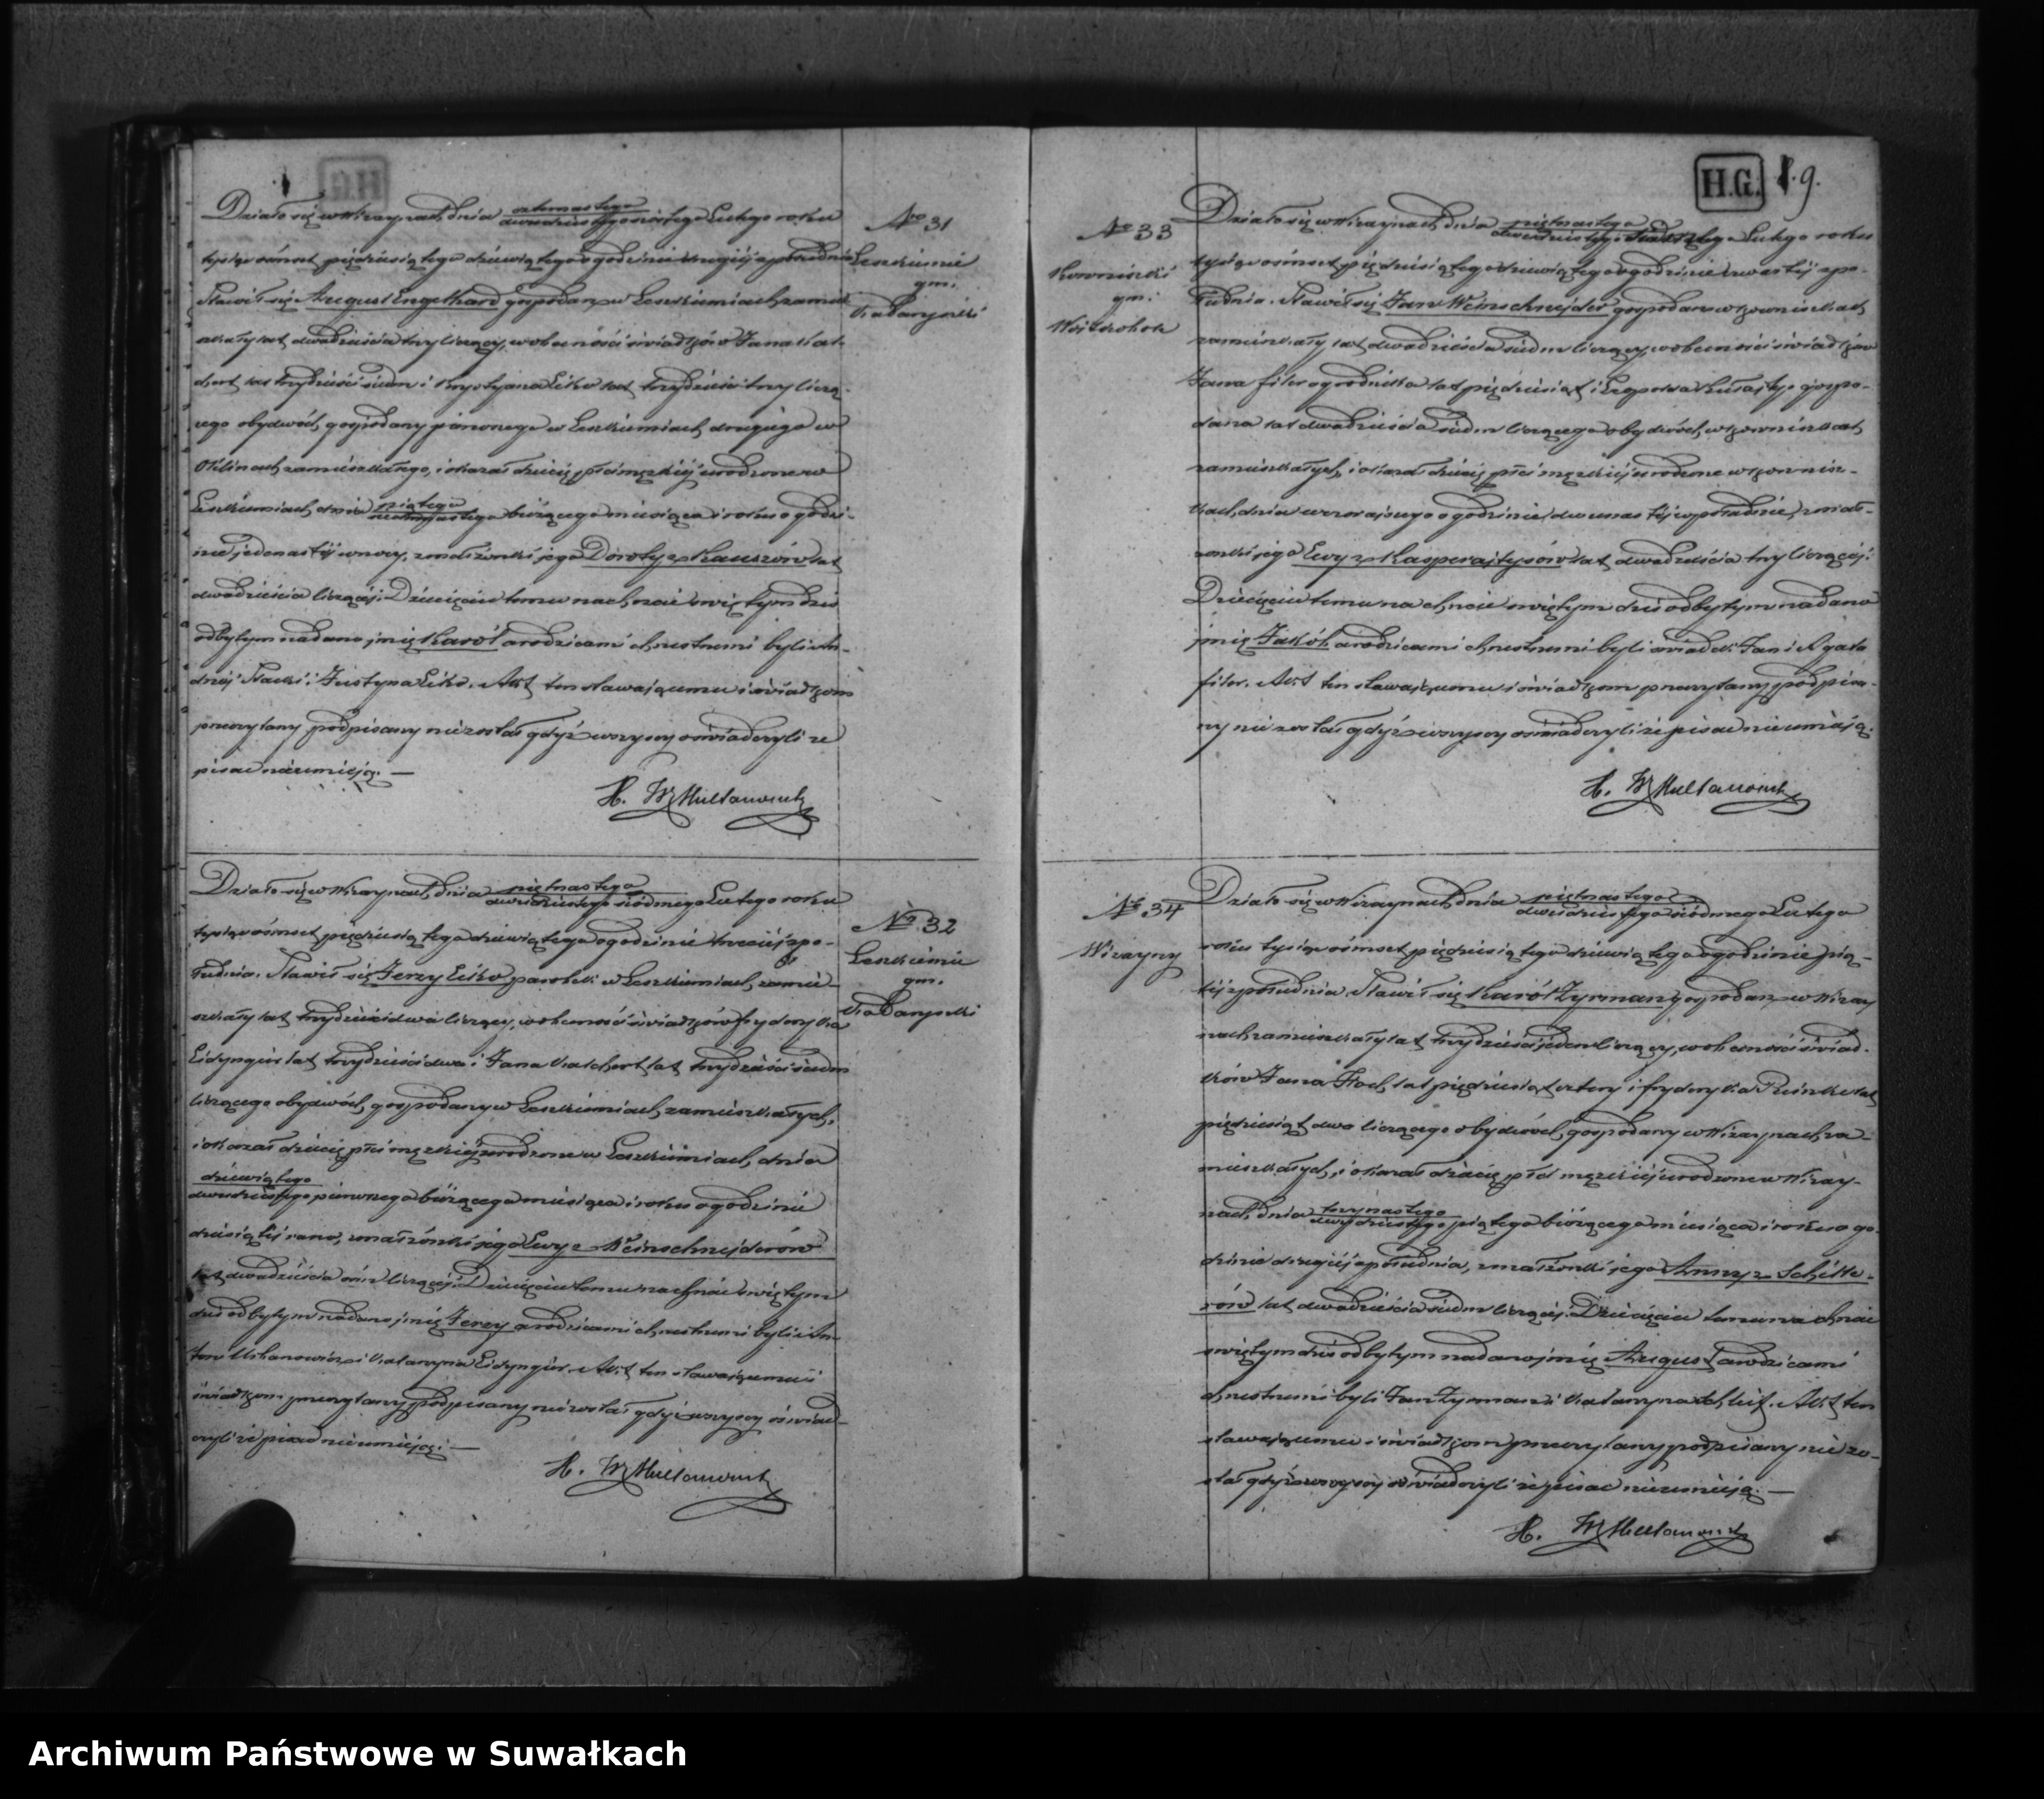 H.G. 9.
Działo się w Wizaynach, dnia czternastego / dwudziestego szóstego Lutego roku
tysiąc ośmset pięćdziesiątego dziewiątego o godzinie drugiéj z południa
Stawił się August Engelhard gospodarz w Leszkiemiach zamie-
szkały lat dwadzieścia trzy liczący, w obecności świadków Jana Kal-
chert lat trzydzieści siedm i Krystyana Liko lat trzydzieści trzy liczą-
cego obydwóch, gospodarzy pierwszego w Leszkiemiach drugiego w
zamieszkałego, i okazał dziecię płci męzkiéj urodzone w
Leszkiemiach, dnia piątego / siedmnastego bieżącego miesiąca i roku o godzi-
nie jedenastéj w nocy, z małżonki jego Doroty z Kauszów lat
dwadzieścia liczącéj. Dziecięciu temu na chrzcie świętym dziś
odbytym nadano imię Karól a rodzicami chrzestnemi byli An-
drzéj i Justyna Liko. Akt ten stawającemu i świadkom
przeczytany podpisany nie został gdyż wszyscy oświadczyli że
pisać nieumieją. —
H. W
No 31
Leszkiemie
gm.
Kadaryszki
Działo się w Wizaynach, dnia piętnastego / dwudziestego siódmego Lutego roku
tysiąc ośmset pięćdziesiątego dziewiątego o godzinie trzeciéj z po-
łudnia. Stawił się Jerzy Liko parobek w Leszkiemiach, zamie-
szkały lat trzydzieści dwa liczący, w obecności świadków Fryderyka
Eidyngier lat trzydzieści dwa i Jana Kalchert lat trzydzieści siedm
liczącego obydwóch, gospodarzy w Leszkiemiach zamieszkałych,
i okazał dziecię płci męzkiéj urodzone w Leszkiemiach, dnia
dziewiątego / dwudziestego pierwszego bieżącego miesiąca i roku o godzinie
dziesiątéj rano, z małżonki jego Ewy z Weinschnejderów
lat dwadzieścia ośm liczącéj. Dziecięciu temu na chrzcie świętym
dziś odbytym nadano imię Jerzy a rodzicami chrzestnemi byli An-
toni Urbanowicz i Katarzyna Eidyngier. Akt ten stawającemu i
świadkom przeczytany podpisany nie został gdyż wszyscy oświad-
czyli że pisać nieumieją. —
H. W
No 32
Leszkiemie
gm.
Kadaryszki
No 33
gm.
Działo się w Wizaynach, dnia piętnastego / dwudziestego siódmego Lutego roku
tysiąc ośmset pięćdziesiątego dziewiątego o godzinie czwartéj z po-
łudnia. Stawił się Jan Weinschnejder gospodarz w
zamieszkały lat dwadzieścia siedm liczący, w obecności świadków
Jana Filer ogrodnika lat pięćdziesiąt i gospo-
darza lat dwadzieścia siedm liczącego obydwóch, w
zamieszkałych, i okazał dziecię płci męzkiéj urodzone w
dnia wczorajszego o godzinie dwunastéj w południe, z mał-
żonki jego Ewy z Kasperajtysów lat dwadzieścia trzy liczącéj.
Dziecięciu temu na chrzcie świętym dziś odbytym nadano
imię Jakób a rodzicami chrzestnemi byli świadek Jan i Agata
Filer. Akt ten stawającemu i świadkom przeczytany podpisa-
ny nie został gdyż wszyscy oświadczyli że pisać nieumieją.
H. W
No 34
Wizayny
Działo się w Wizaynach, dnia piętnastego / dwudziestego siódmego Lutego
roku tysiąc ośmset pięćdziesiątego dziewiątego o godzinie pią-
téj z południa. Stawił się Karól Zyrman gospodarz w Wizay-
nach zamieszkały lat trzydzieści jeden liczący, w obecności świad-
ków Jana lat pięćdziesiąt cztery i Fryderyka lat
pięćdziesiąt dwa liczącego obydwóch, gospodarzy w Wizaynach za-
mieszkałych, i okazał dziecię płci męzkiéj urodzone w Wizay-
nach, dnia trzynastego / dwudziestego piątego bieżącego miesiąca i roku o go-
dzinie drugiéj z południa, z małżonki jego Anny z Schille-
rów lat dwadzieścia siedm liczącéj. Dziecięciu temu na chrzcie
świętym dziś odbytym nadano imię August a rodzicami
chrzestnemi byli Jan Zyrman i Katarzyna. Akt ten
stawającemu i świadkom przeczytany podpisany nie zo-
stał gdyż wszyscy oświadczyli że pisać nieumieją. —
H. W
Archiwum Państwowe w Suwałkach